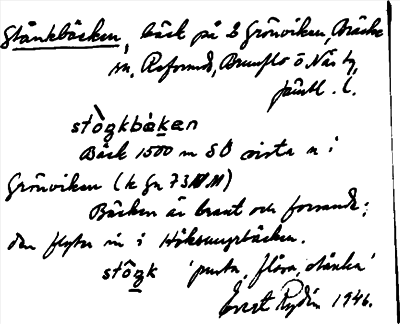 Stänkbäcken, bäck på S Grönviken, Bräcke
sn, Refsunds, Brunflo o. Näs tg,
jämtl. l.
stògkbàkan
Bäck 1500 m SO sista n i
Grönviken (k Gn 73 NV)
Bäcken är brant och forsande;
den flyter in i Höksungsbäcken.
stôgk 'puta, flåsa, stänka'
Evert Rydin 1946.